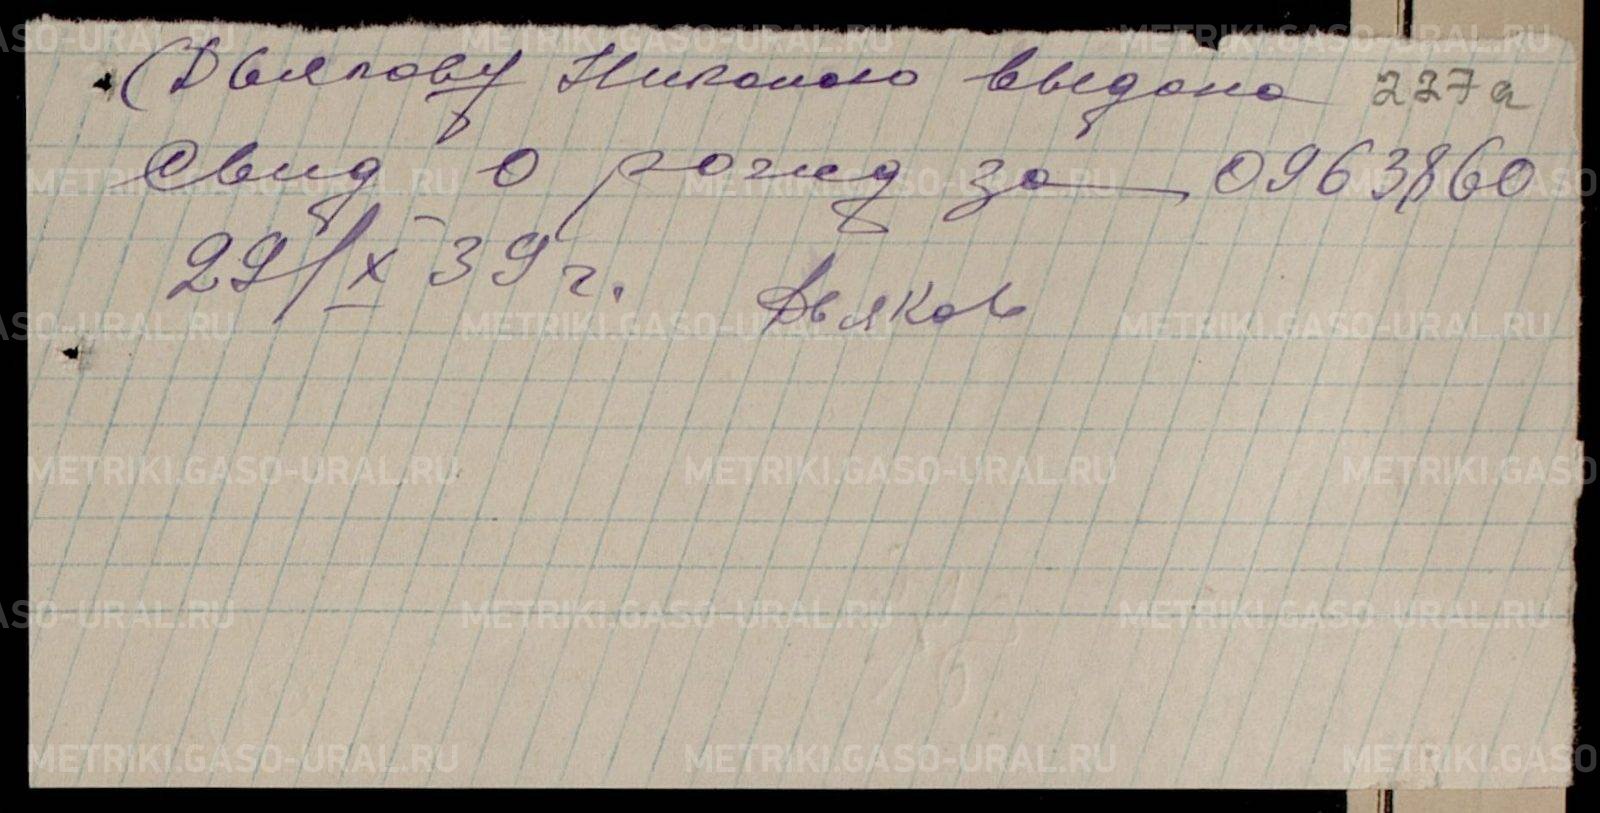 Дьякову Николаю выдано 227а
Свид о рожд за 0963860
29/X 39 г. Дьяков
METRIKI.GASO-URAL.RU